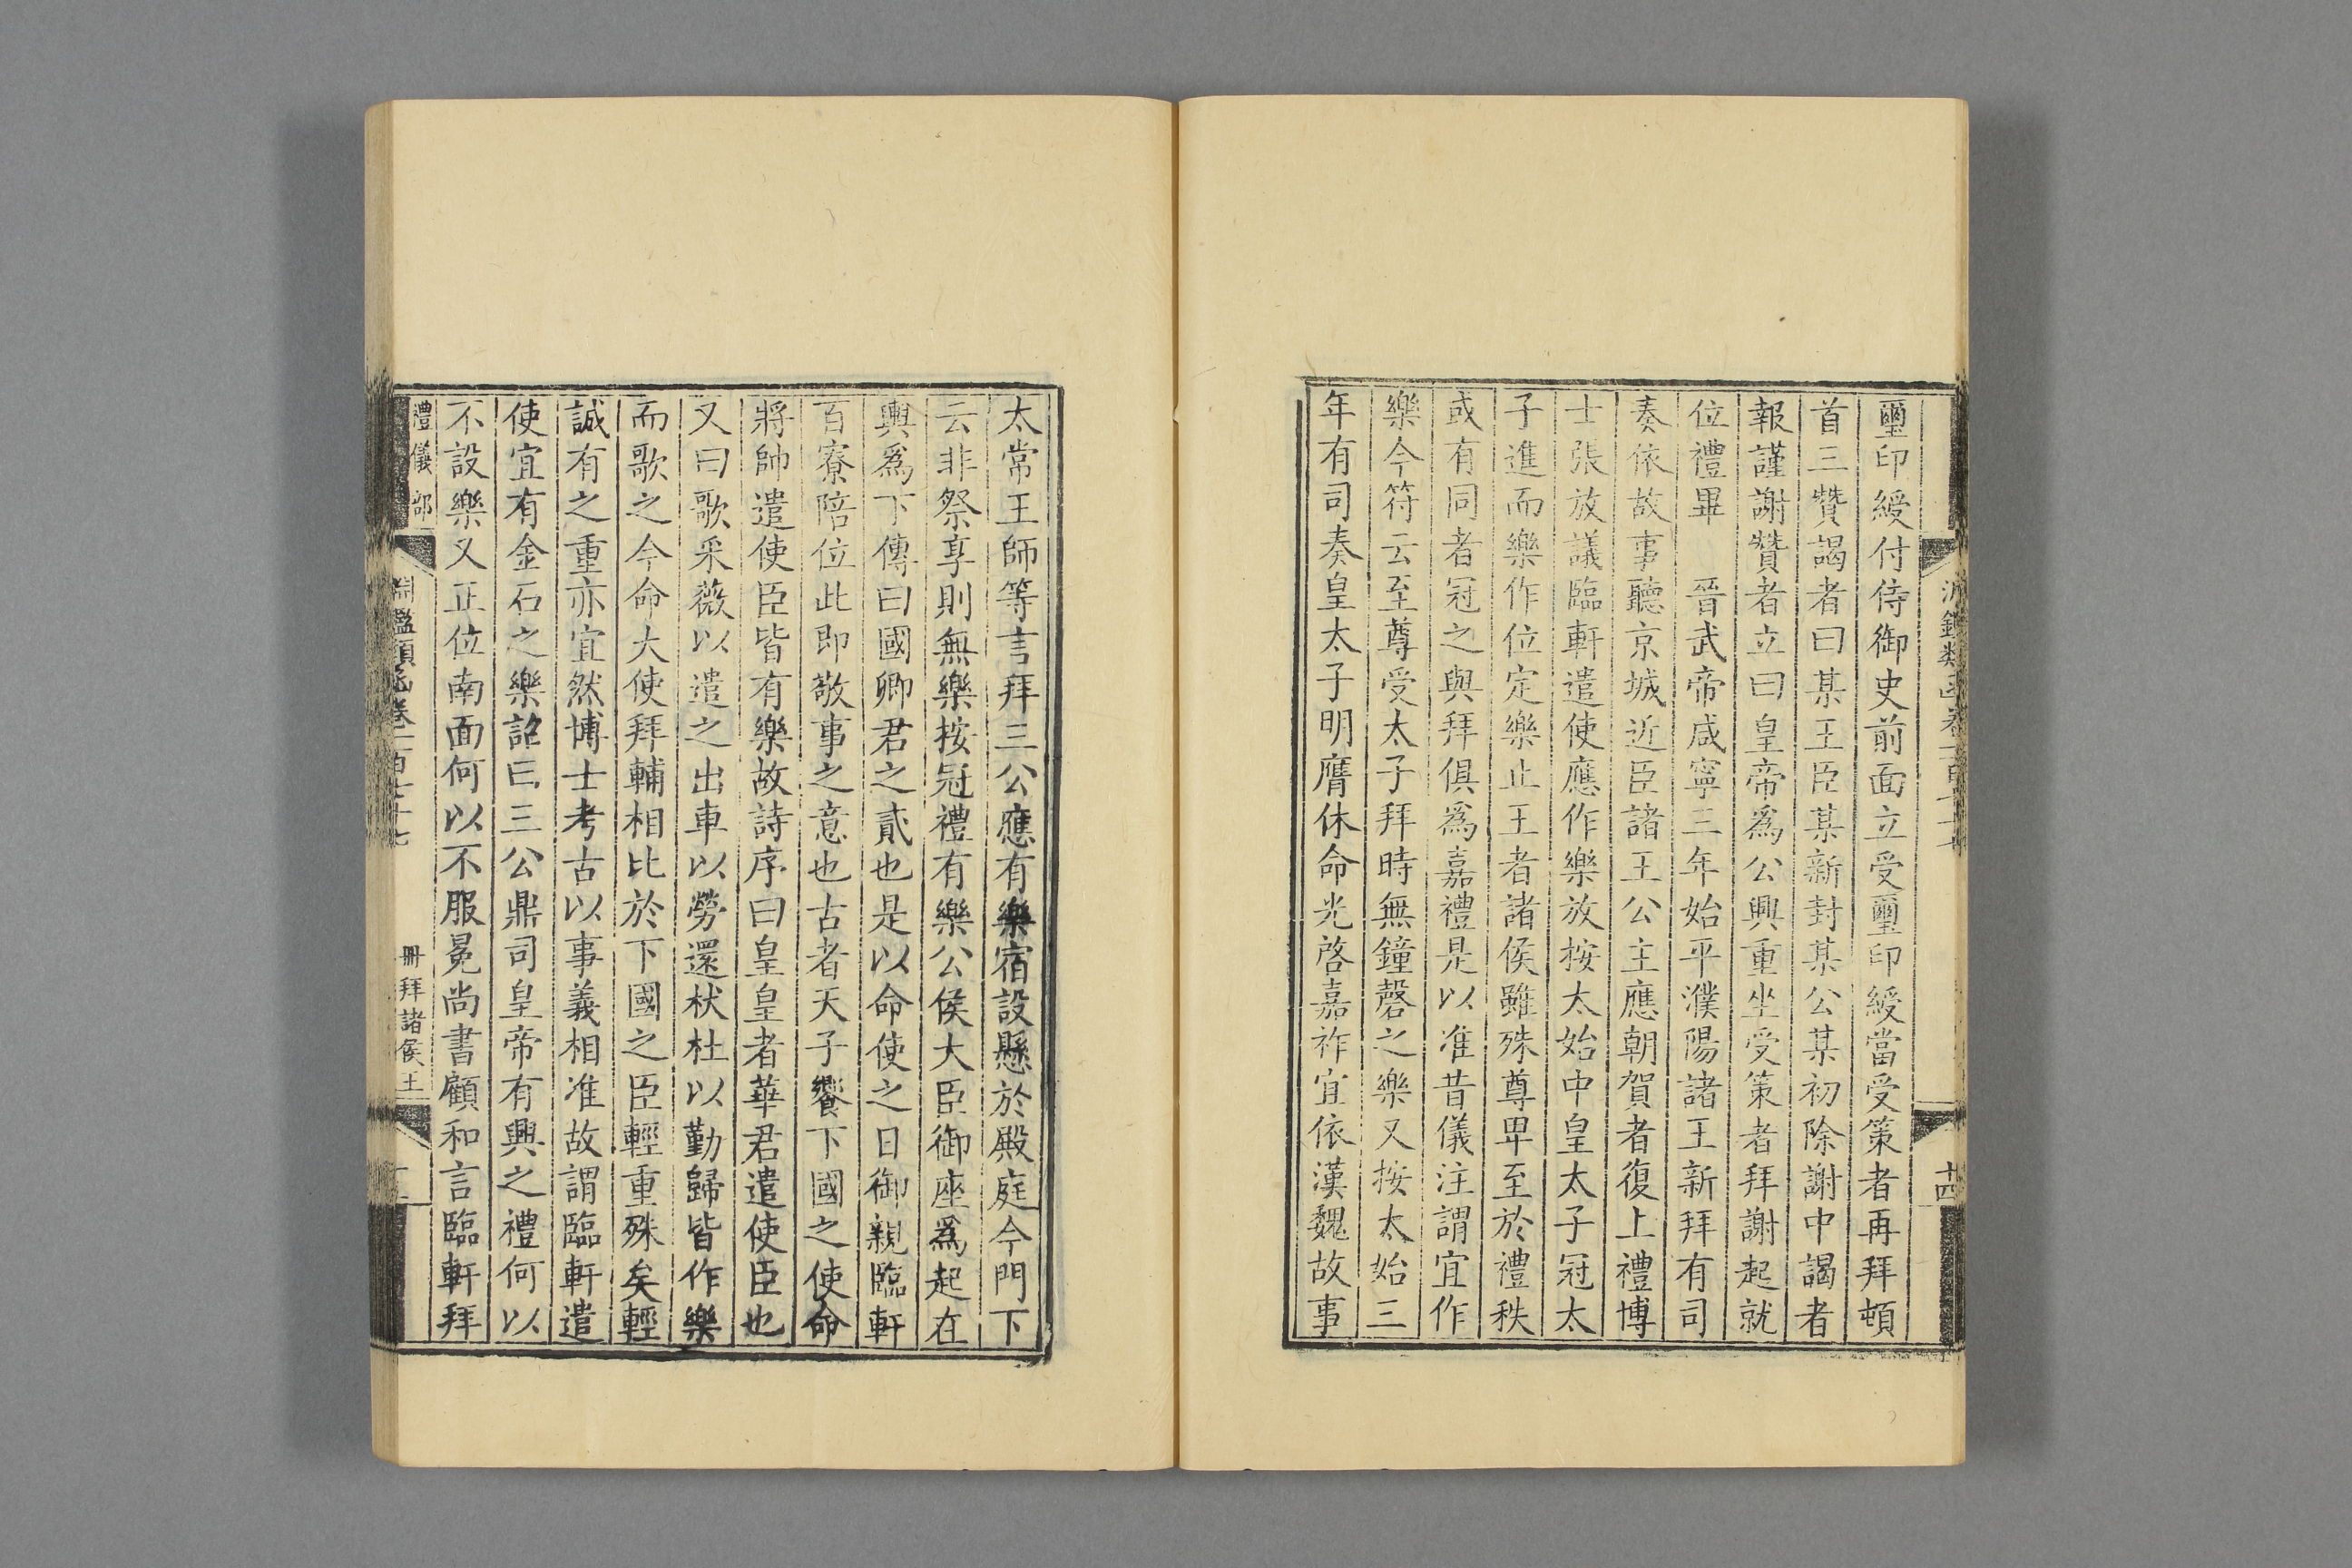 淵鑑類函卷二百七十七
十四
璽印綬付侍御史前面立受璽印綬當受策者再拜頓
首三贊謁者曰某王臣某新封某公某初除謝中謁者
報謹謝贊者立曰皇帝爲公興重坐受策者拜謝起就
位禮畢　晉武帝咸寧三年始平濮陽諸王新拜有司
奏依故事聽京城近臣諸王公主應朝賀者復上禮博
士張放議臨軒遣使應作樂放按太始中皇太子冠太
子進而樂作位定樂止王者諸侯雖殊尊卑至於禮秩
或有同者冠之與拜俱爲嘉禮是以准昔儀注謂宜作
樂今符云至尊受太子拜時無鐘磬之樂又按太始三
年有司奏皇太子明膺休命光啓嘉祚宜依漢魏故事
太常王師等言拜三公應有樂宿設懸於殿庭今門下
云非祭享則無樂按冠禮有樂公侯大臣御座爲起在
輿爲下傳曰國卿君之貳也是以命使之日御親臨軒
百寮陪位此即敬事之意也古者天子饗下國之使命
將帥遣使臣皆有樂故詩序曰皇皇者華君遣使臣也
又曰歌采薇以遣之出車以勞還杕杜以勤歸皆作樂
而歌之今命大使拜輔相比於下國之臣輕重殊矣輕
誠有之重亦宜然博士考古以事義相准故謂臨軒遣
使宜有金石之樂詔曰三公鼎司皇帝有興之禮何以
不設樂又正位南面何以不服冕尚書顧和言臨軒拜
禮儀部
淵鑑類函卷二百七十七
冊拜諸侯王